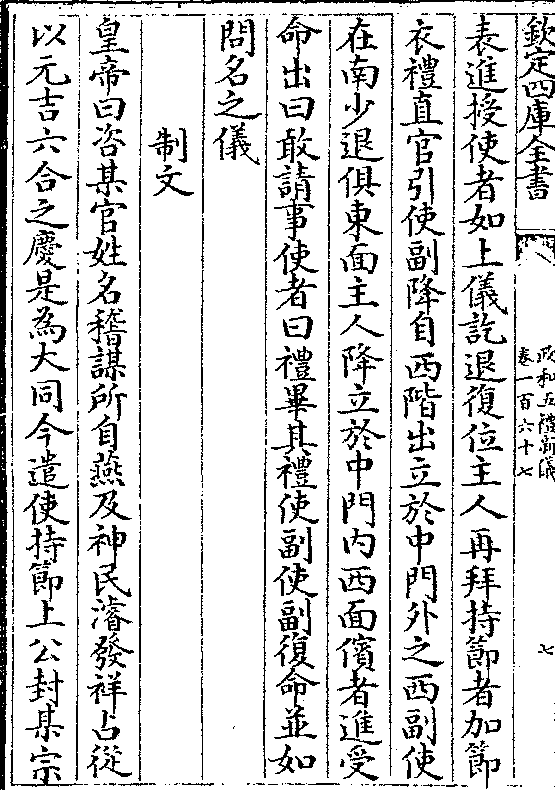 欽定四庫全書
政和五禮新儀
卷一百六十七
七
表進授使者如上儀訖退復位主人再拜持節者加節
衣禮直官引使副降自西階出立於中門外之西副使
在南少退俱東面主人降立於中門內西面儐者進受
命出曰敢請事使者曰禮畢其禮使副使副復命並如
問名之儀
制文
皇帝曰咨某官姓名稽謀所自燕及神民濬發祥占從
以元吉六合之慶是為大同今遣使持節上公封某宗